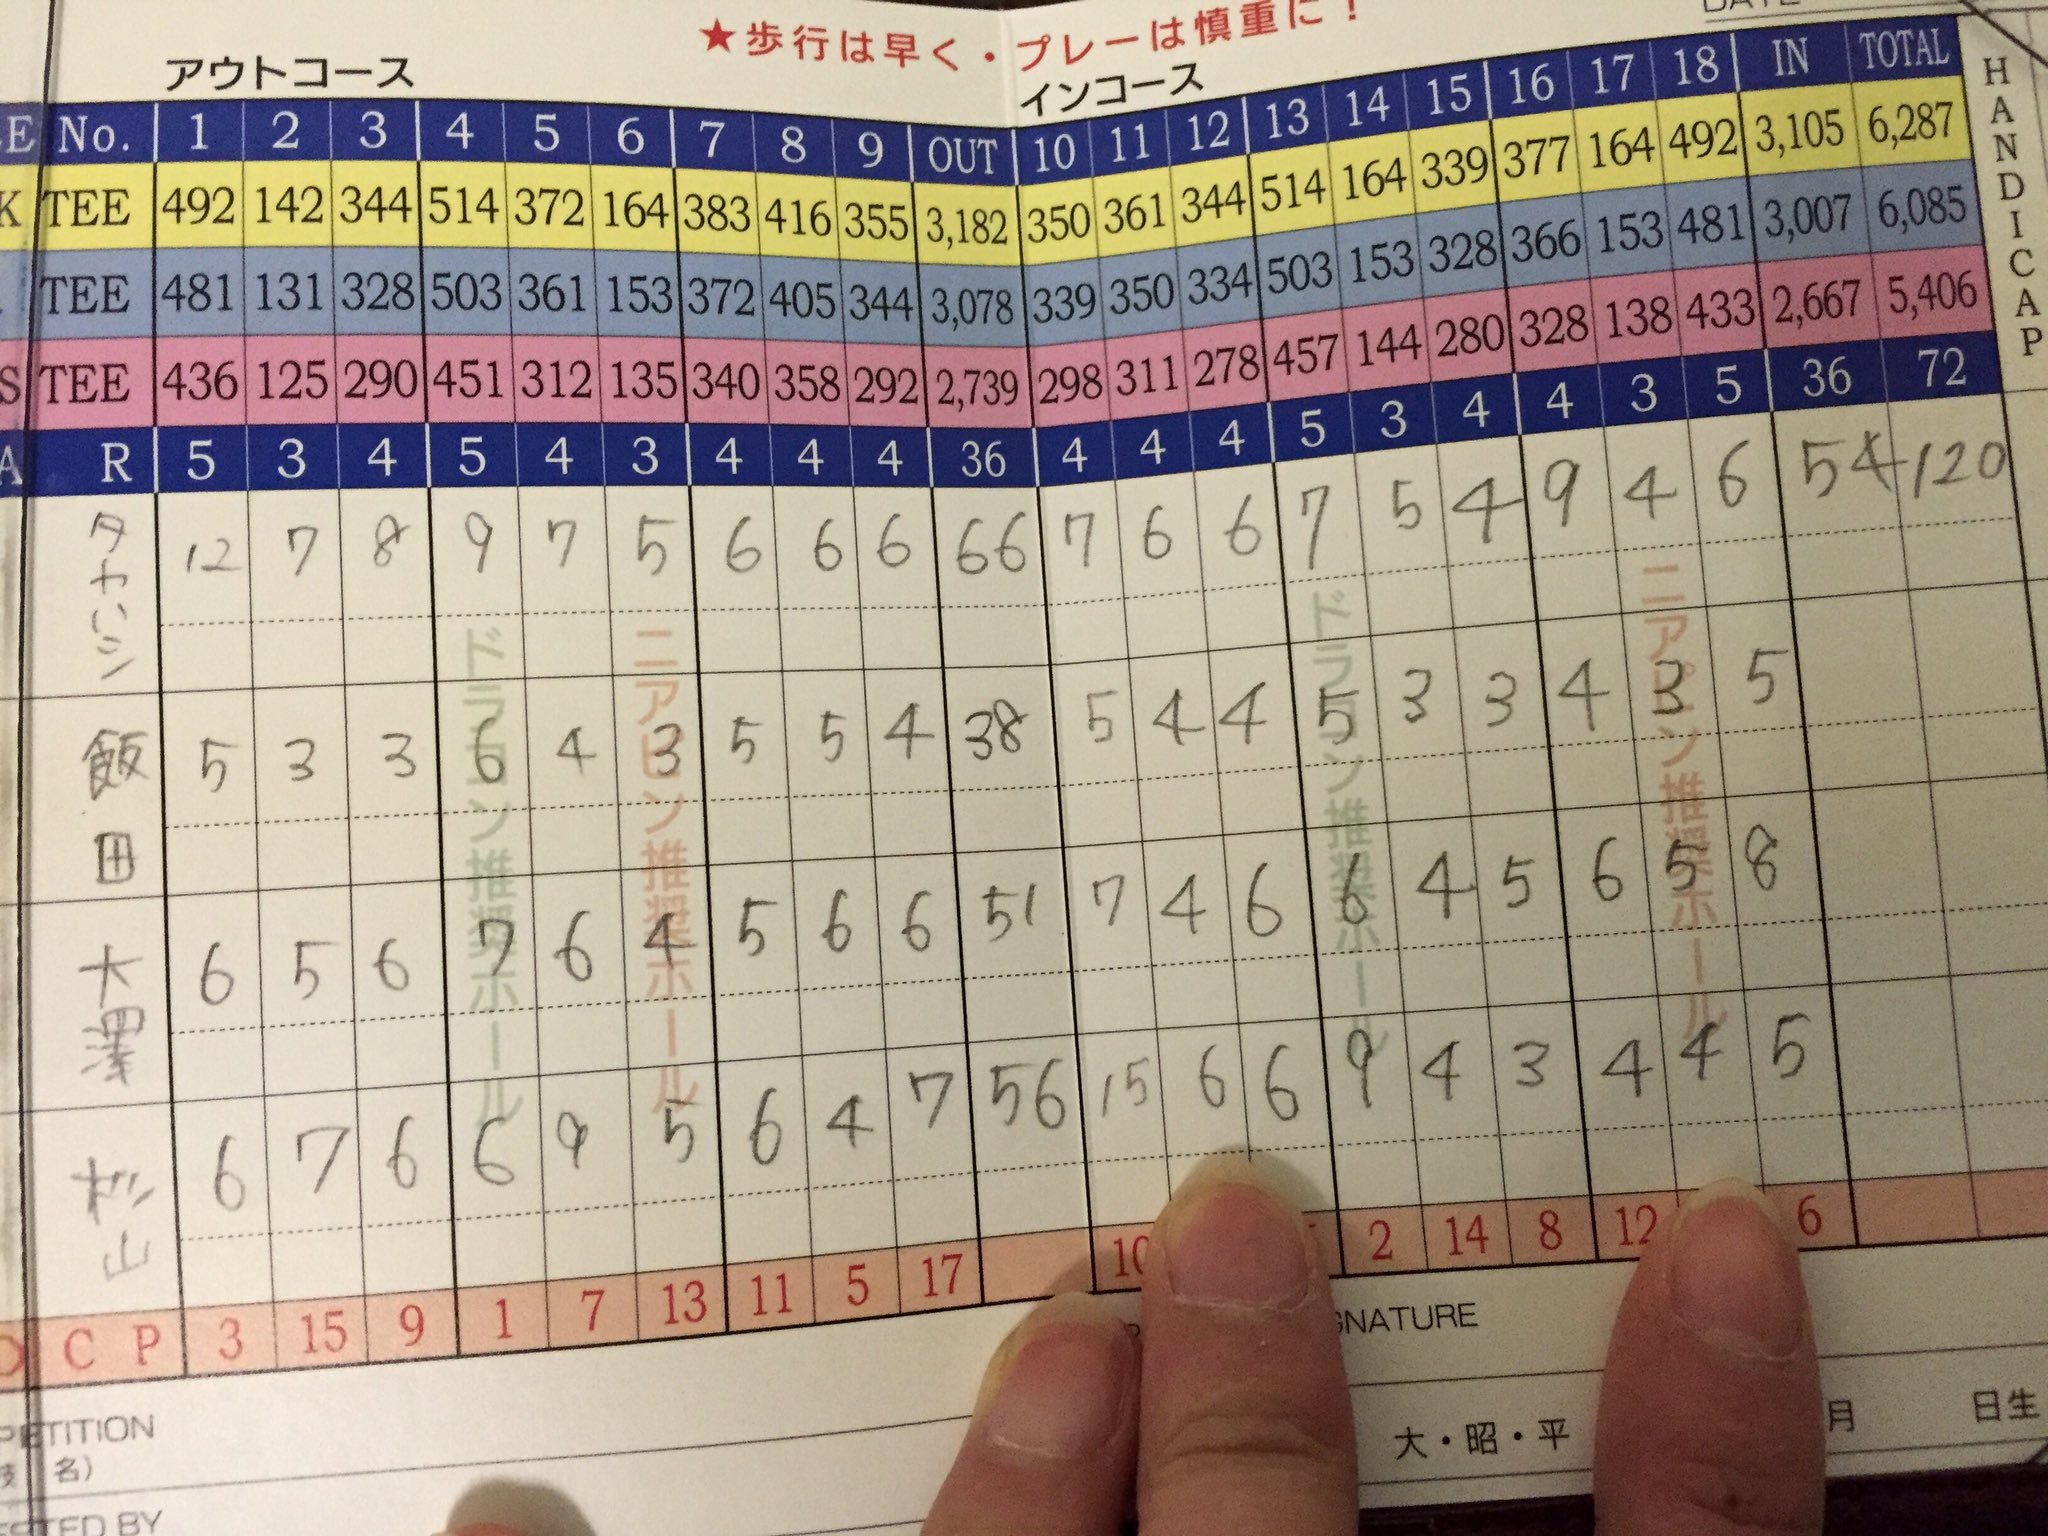 ★歩行は早く・プレーは慎重に！
アウトコース インコース
E No. 1 2 3 4 5 6 7 8 9 OUT 10 11 12 13 14 15 16 17 18 IN TOTAL
HANDICAP
K TEE 492 142 344 514 372 164 383 416 355 3,182 350 361 344 514 164 339 377 164 492 3,105 6,287
TEE 481 131 328 503 361 153 372 405 344 3,078 339 350 334 503 153 328 366 153 481 3,007 6,085
S TEE 436 125 290 451 312 135 340 358 292 2,739 298 311 278 457 144 280 328 138 433 2,667 5,406
A R 5 3 4 5 4 3 4 4 4 36 4 4 4 5 3 4 4 3 5 36 72
12 7 8 9 7 5 6 6 6 66 7 6 6 7 5 4 9 4 6 54 120
飯田 5 3 3 6 4 3 5 5 4 38 5 4 4 5 3 3 4 3 5
大澤 6 5 6 7 6 4 5 6 6 51 7 4 6 6 4 5 6 5 8
杉山 6 7 6 6 9 5 6 4 7 56 15 6 6 9 4 3 4 4 5
ドラコン推奨ホール ニアピン推奨ホール ドラコン推奨ホール ニアピン推奨ホール
C P 3 15 9 1 7 13 11 5 17 10 2 14 8 12 6
PETITION
名)
GNATURE
大・昭・平 月 日生
TED BY